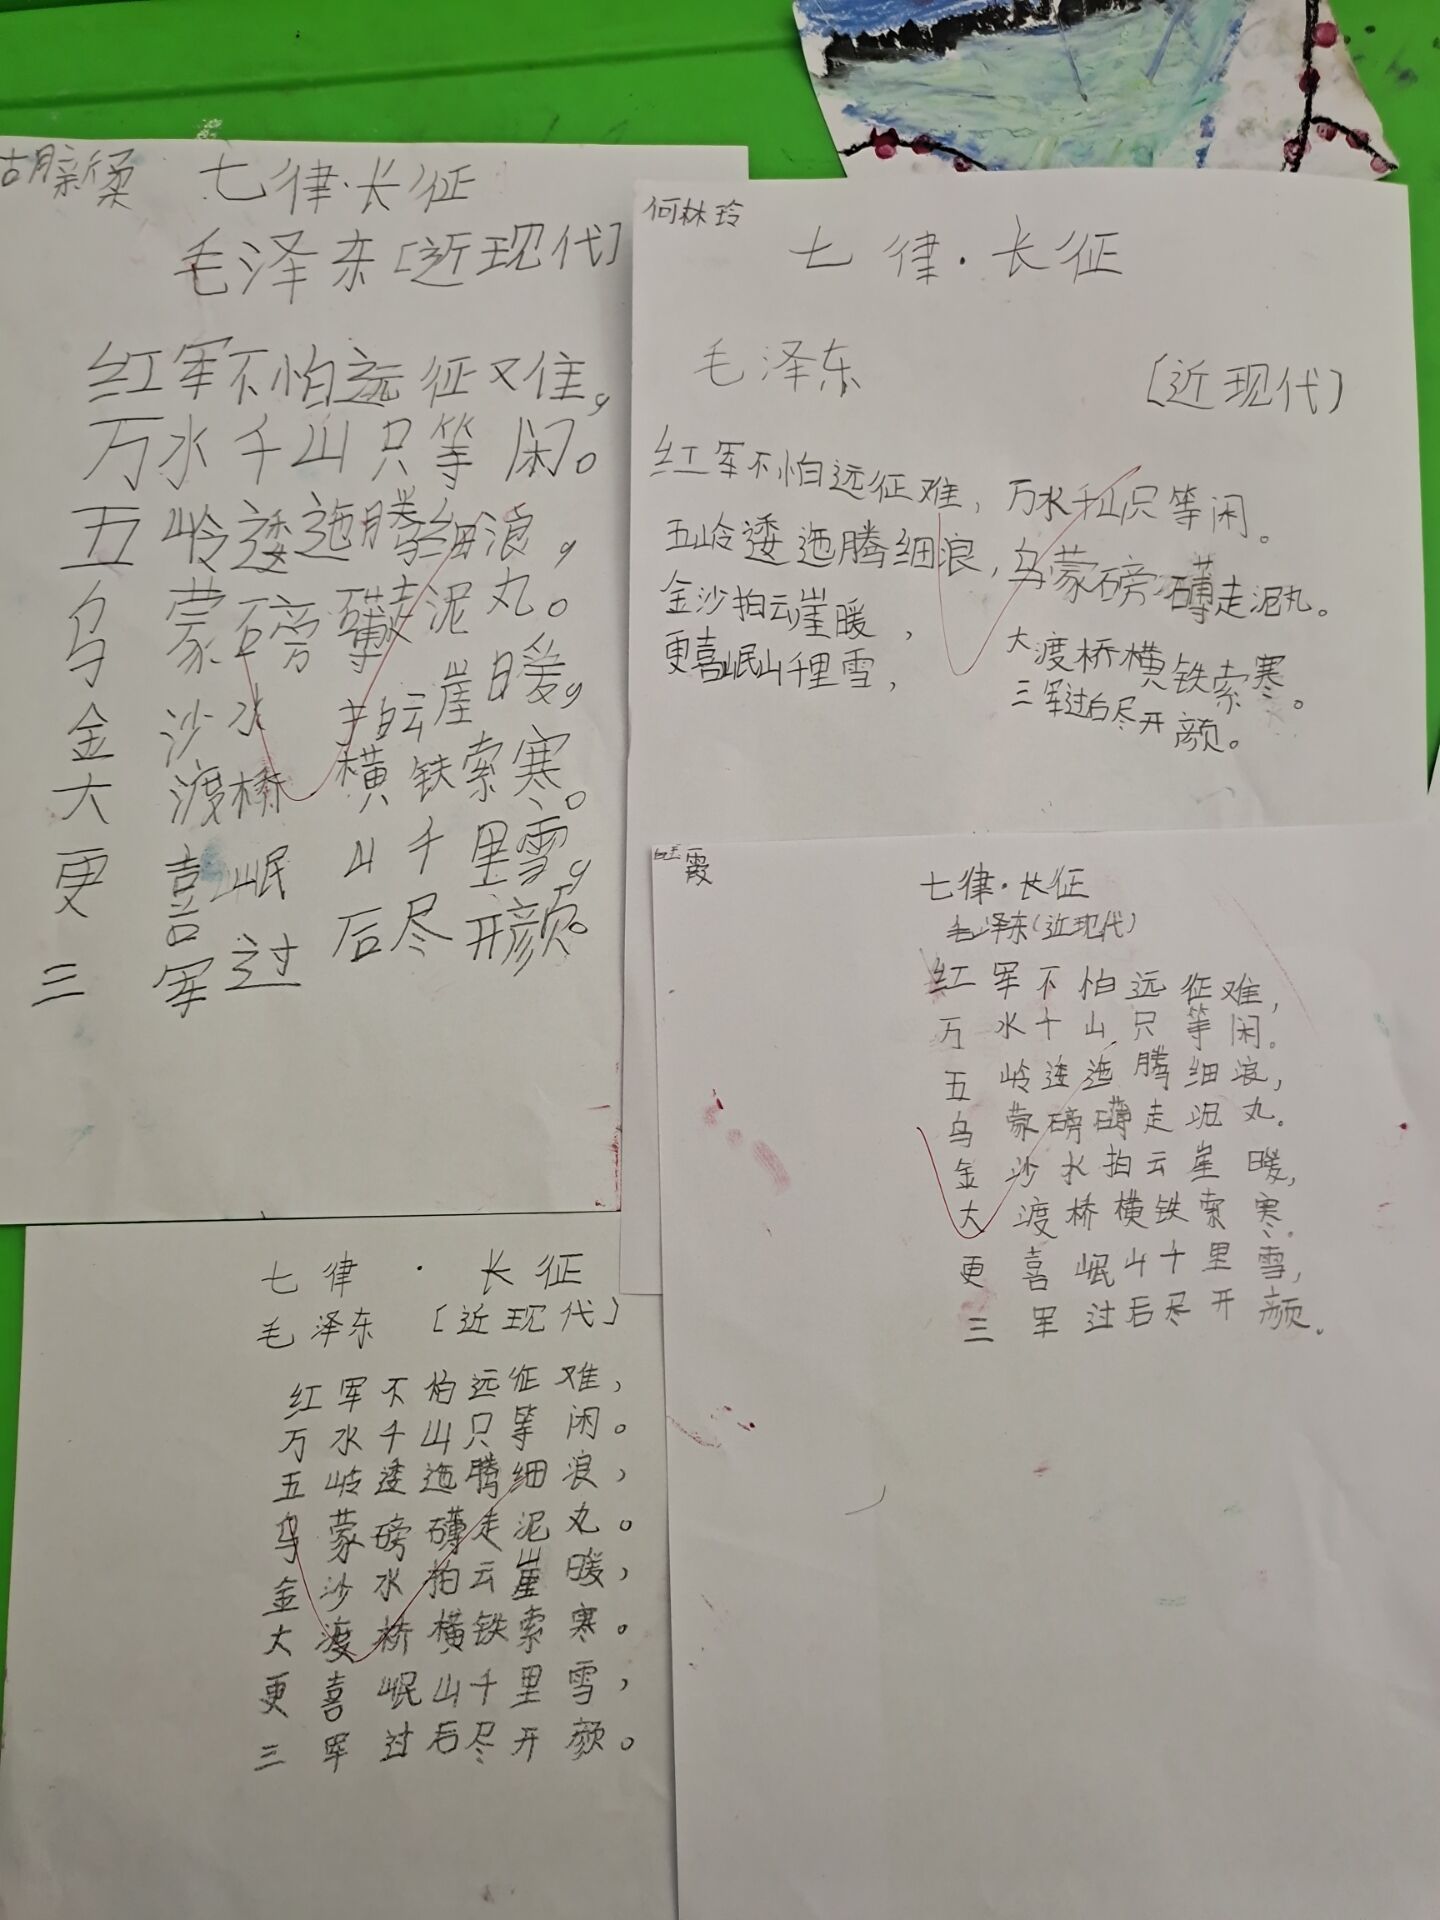 胡新柔
七律·长征
毛泽东[近现代]
红军不怕远征难,
万水千山只等闲。
五岭逶迤腾细浪,
乌蒙磅礴走泥丸。
金沙水拍云崖暖,
大渡桥横铁索寒。
更喜岷山千里雪,
三军过后尽开颜。
何林玲
七律·长征
毛泽东 [近现代]
红军不怕远征难,万水千山只等闲。
五岭逶迤腾细浪,乌蒙磅礴走泥丸。
金沙拍云崖暖,大渡桥横铁索寒。
更喜岷山千里雪,三军过后尽开颜。
七律·长征
毛泽东[近现代]
红军不怕远征难,
万水千山只等闲。
五岭逶迤腾细浪,
乌蒙磅礴走泥丸。
金沙水拍云崖暖,
大渡桥横铁索寒。
更喜岷山千里雪,
三军过后尽开颜。
霞
七律·长征
毛泽东(近现代)
红军不怕远征难,
万水千山只等闲。
五岭逶迤腾细浪,
乌蒙磅礴走泥丸.
金沙水拍云崖暖,
大渡桥横铁索寒.
更喜岷山千里雪,
三军过后尽开颜.